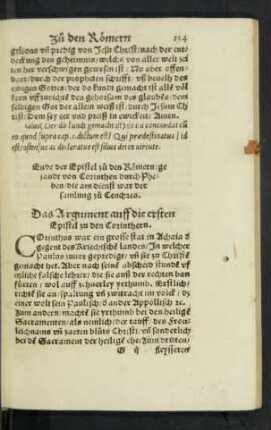 Zů den Römern 234
gelions vñ predig von Jesu Christ/ nach der ent
deckung des geheimnis/ welchs von aller welt zei
ten her verschwigen gewesen ist/ Nu aber offen-
bart/ durch der propheten schrifft/ vß beuelh des
ewigen Gottes/ der do kundt gemacht ist alle völ
ckern vffzurichtē den gehorsam des glaubēs/ dem
selbigen Got der allein weiß ist/ durch Jesum Ch
rist/ Dem sey eer vnd preiß in ewickeit/ Amen.
Ende der Epistel zů den Römern/ ge
sandt von Corinthen durch Phe-
ben/ die am dienst war der
samlung zů Cenchrea.
Das Argument auff die ersten
Epistel zů den Corinthern.
Corinthus war ein grosse stat in Achaia ō
gegen des Kriechischē landes/ In welcher
Paulus zuuor gepredigt/ vñ sie zu Christē
gemacht het. Aber nach seinē abscheid stundē vf
fliche falsche lerer/ die sie auß der rechten ban
fürten/ wol auff schnerley yrthumb. Erstlich/
richtē sie an/ spaltung vñ zwitracht im volck/ dz
einer wolt sein Paulisch/ ō ander Appollisch ꝛc.
Zum andern/ machtē sie yrthumb bei den heilige
Sacramenten/ als nemlich/ der tauff/ des Fron-
leichnams vñ zarten blůts Christi/ vñ sonderlich
bei dē Sacrament der heiligē ehe/ Zum dritten/
G ij